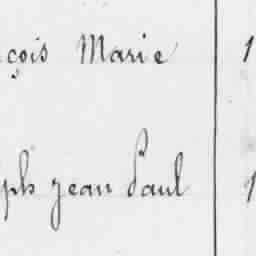 çois Marie 1
ph jean Paul 1